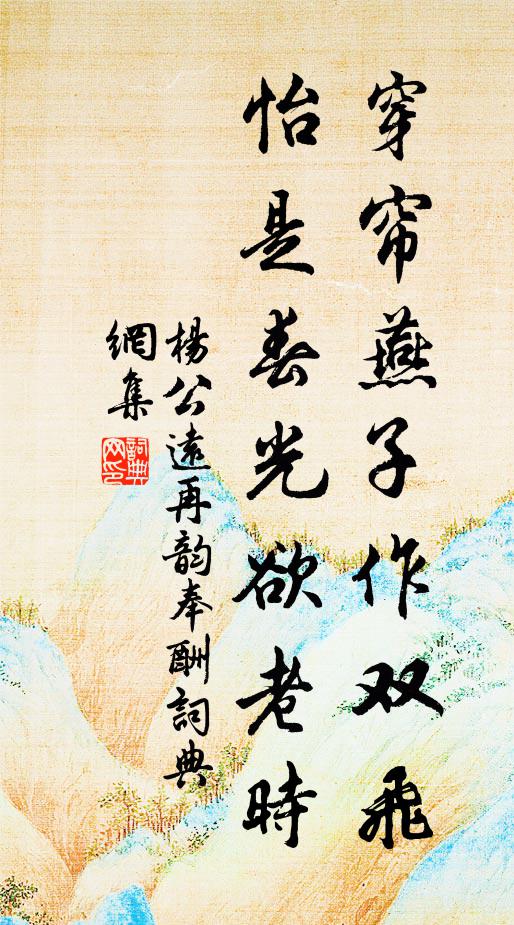 穿帘燕子作双飛
怡是春光欲老時
楊公遠再韵奉酬詞典
網集
詞典
网印